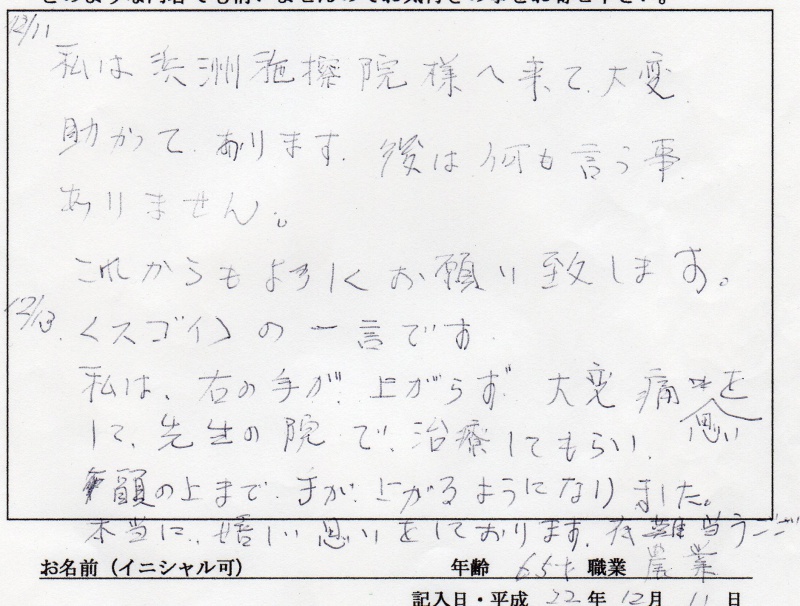 12/11
私は浜洲施療院様へ来て、大変
助かって、おります。後は何も言う事
ありません。
これからもよろしくお願い致します。
12/13. 〈スゴイ〉の一言です.
私は、右の手が、上がらず、大変痛い思いを
して、先生の院で、治療してもらい、
頭の上まで、手が、上がるようになりました。
本当に、嬉しい思いをしております。有難う
お名前（イニシャル可） 年齢 65才 職業 農業
記入日・平成 22年 12月 11日